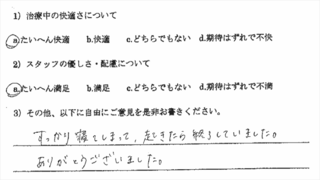 1）治療中の快適さについて
a.たいへん快適　b.快適　c.どちらでもない　d.期待はずれで不快
2）スタッフの優しさ・配慮について
a.たいへん満足　b.満足　c.どちらでもない　d.期待はずれで不満
3）その他、以下に自由にご意見を是非お書きください。
すっかり寝てしまって、起きたら終了していました。
ありがとうございました。